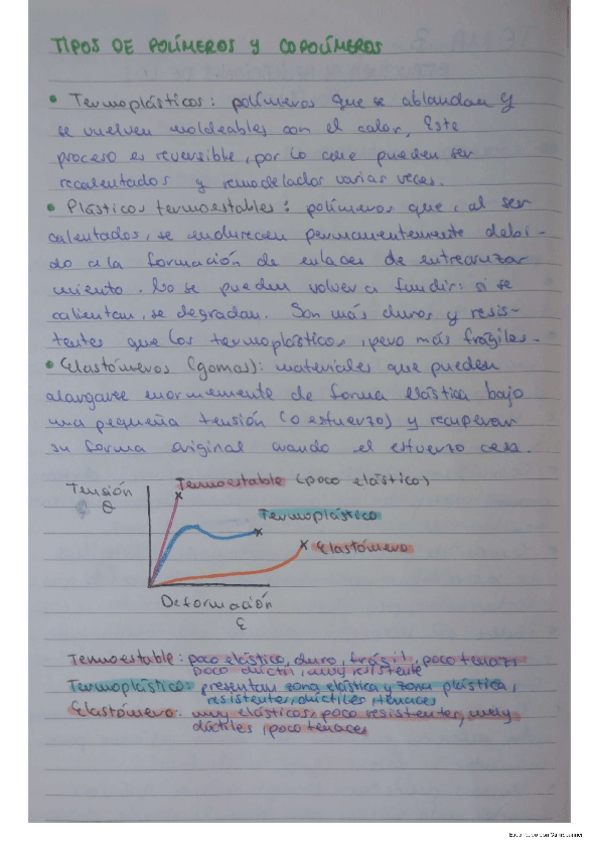 TIPOS DE POLÍMEROS Y COPOLÍMEROS
• Termoplásticos: polímeros que se ablandan y
se vuelven moldeables con el calor, Este
proceso es reversible, por lo que pueden ser
recalentados y remodelados varias veces.
• Plásticos termoestables: polímeros que, al ser
calentados, se endurecen permanentemente debi-
do a la formación de enlaces de entrecruza
miento. No se pueden volver a fundir: si se
calientan, se degradan. Son más duros y resis-
tentes que los termoplásticos, pero más frágiles.
• Elastómeros (gomas): materiales que pueden
alargarse enormemente de forma elástica bajo
una pequeña tensión (o esfuerzo) y recuperar
su forma original cuando el esfuerzo cesa.
Termoestable (poco elástico)
Tensión
Termoplástico
Elastómero
Deformación
ε
Termoestable: poco elástico, duro, frágil, poco tenaz,
poco dúctil, muy resistente
Termoplástico: presentan zona elástica y zona plástica,
resistentes, dúctiles, tenaces
Elastómero: muy elásticos, poco resistentes, muy
dúctiles, poco tenaces